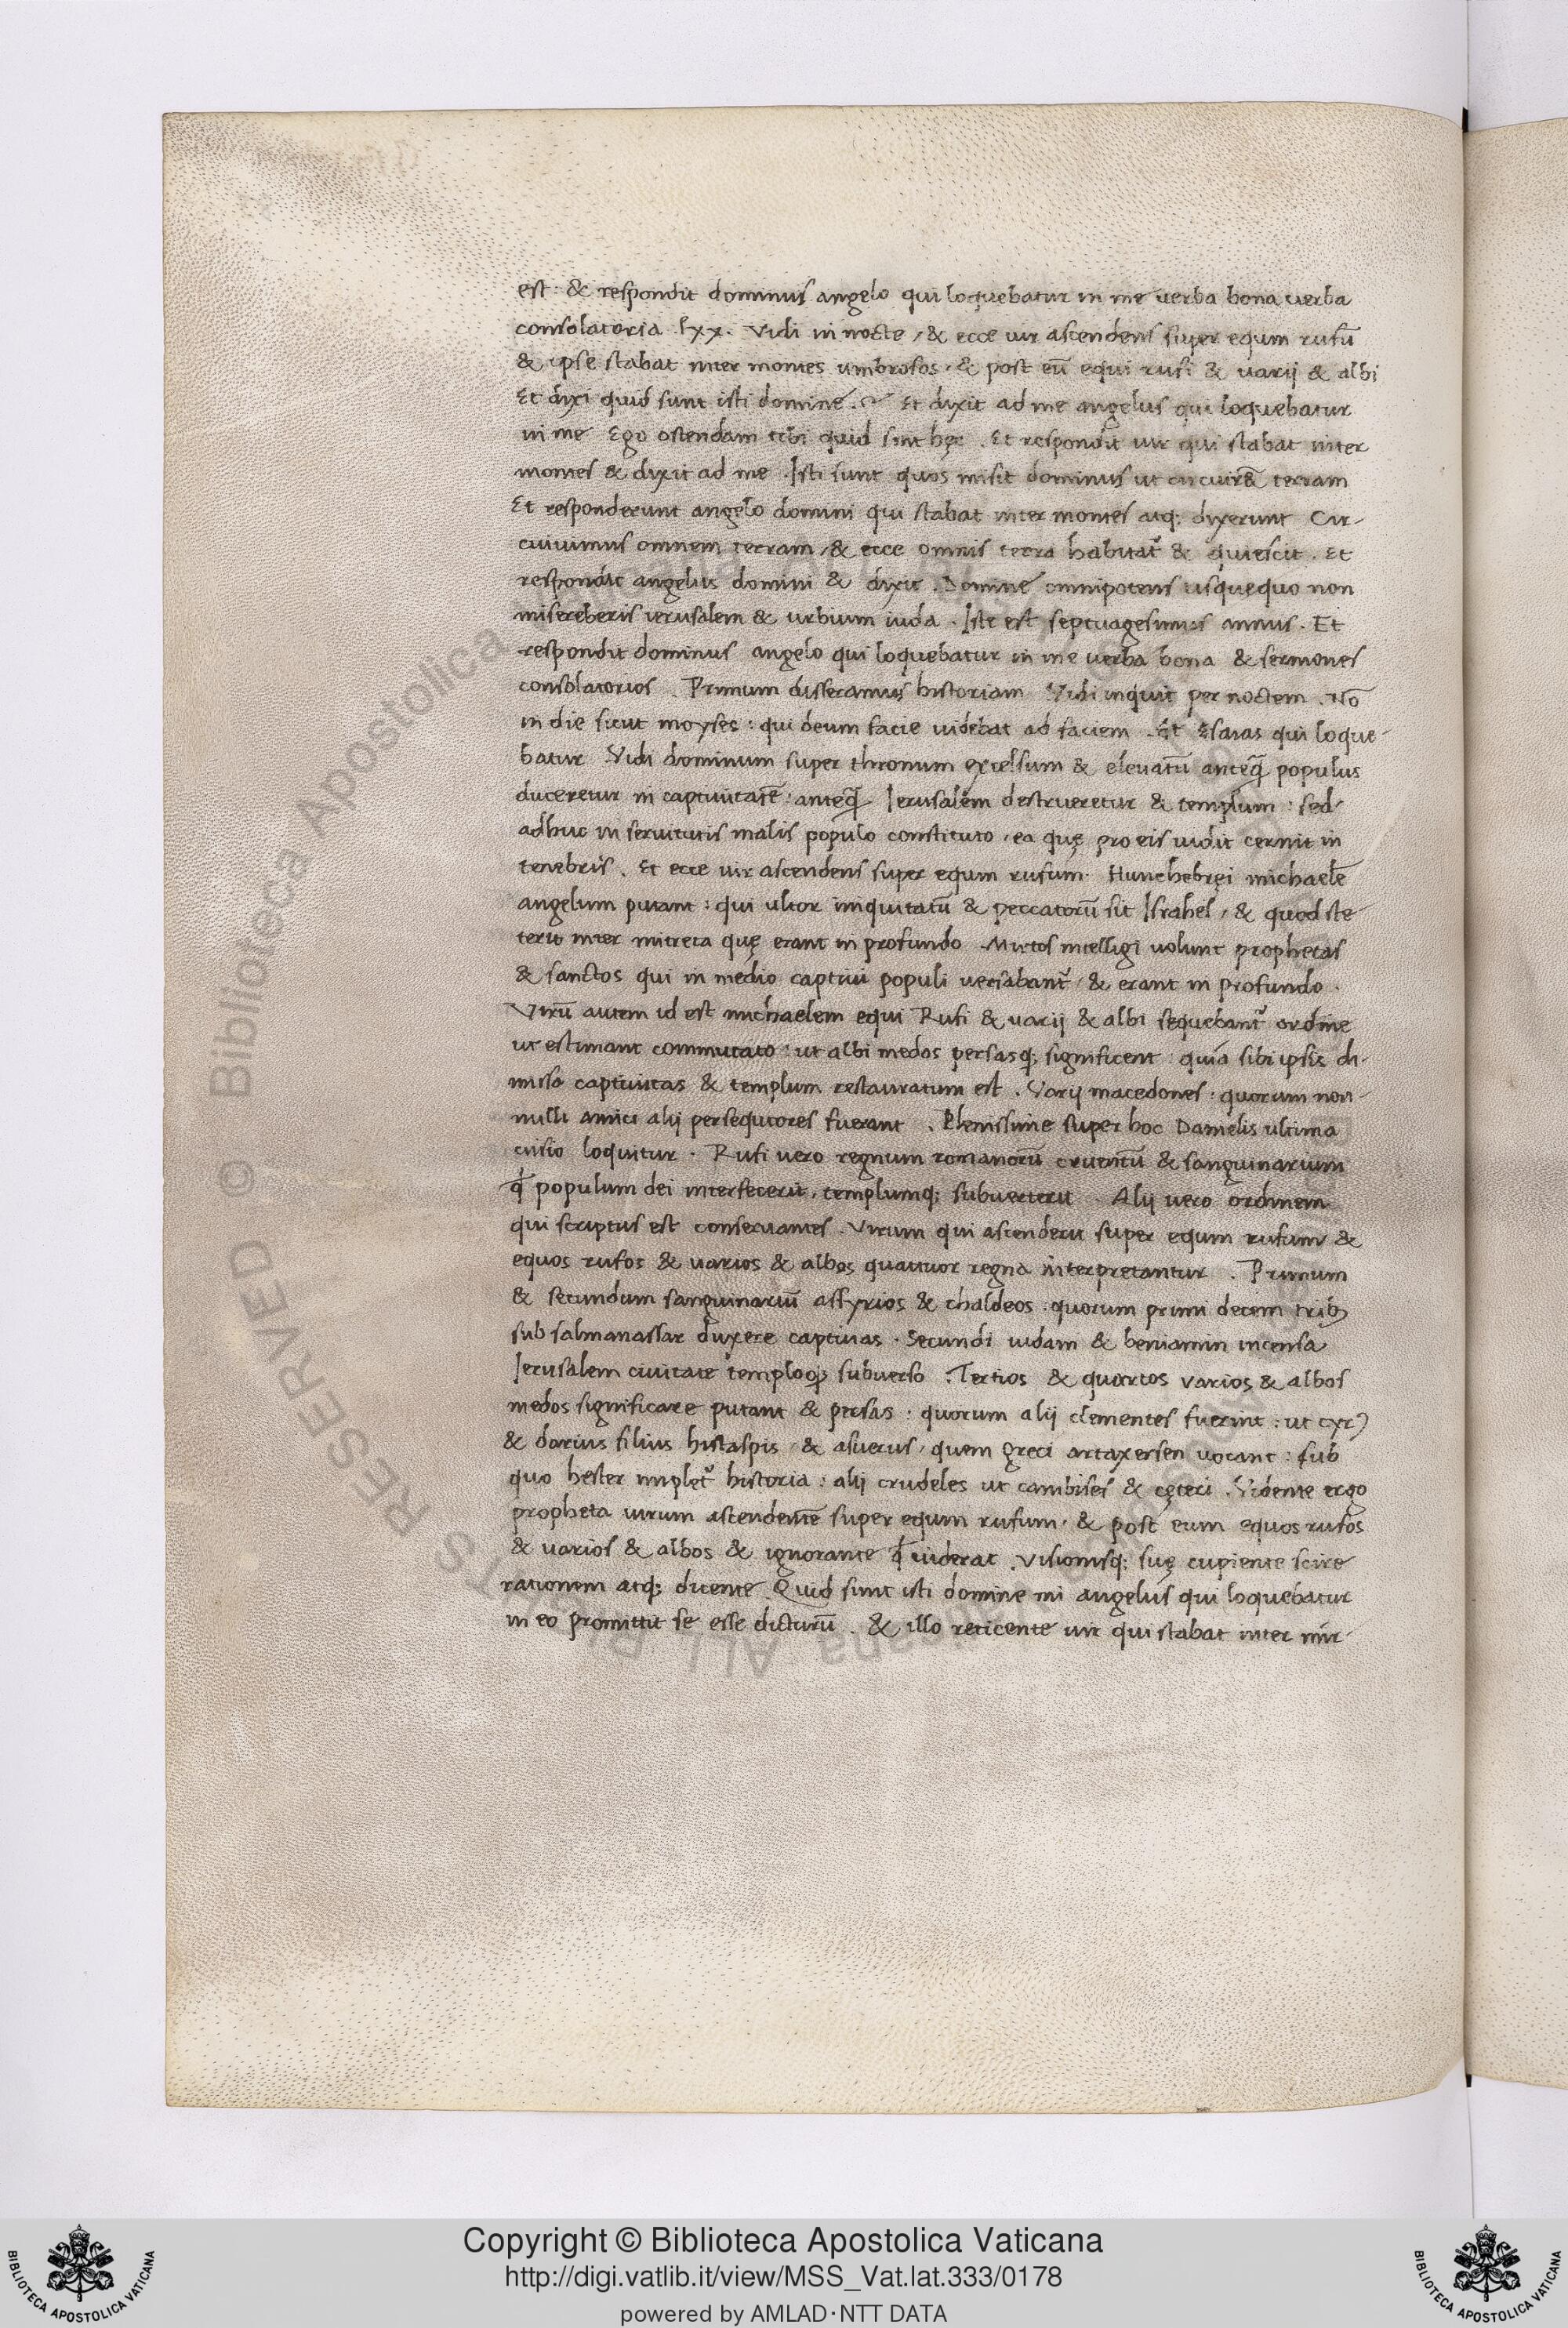 est: & respondit dominus angelo qui loquebatur in me verba bona verba
consolatoria. lxx. Vidi in nocte, & ecce uir ascendens super equm rufū
& ipse stabat inter montes umbrosos. & post eū equi rufi & varij & albi
Et dixi quid sunt isti domine. Et dixit ad me angelus qui loquebatur
in me Ego ostendam tibi quid sint hęc. Et respondit uir qui stabat inter
montes & dixit ad me. Isti sunt quos misit dominus ut circuirēt terram
Et responderunt angelo domini qui stabat inter montes atq; dixerunt Cir-
cuiuimus omnem terram, & ecce omnis terra habitat᷑ & quiescit. Et
respondit angelus domini & dixit. Domine omnipotens usquequo non
misereberis ierusalem & urbium iuda. Iste est septuagesimus annus. Et
respondit dominus angelo qui loquebatur in me verba bona & sermones
consolatorios. Primum disseramus historiam Vidi inquit per noctem. Nō
in die sicut moyses: qui deum facie uidebat ad faciem. Et Esaias qui loque-
batur Vidi dominum super thronum excelsum & eleuatū anteq̄ populus
duceretur in captiuitatē: anteq̄ Ierusalem destrueretur & templum: sed
adhuc in seruitutis malis populo constituto, ea quę pro eis uidit cernit in
tenebris. Et ecce uir ascendens super equm rufum. Hunc hebręi michaelē
angelum putant: qui ultor iniquitatū & peccatorū sit Israhel, & quod ste-
terit inter mirteta quę erant in profundo. Mirtos intelligi uolunt prophetas
& sanctos qui in medio captiui populi uersabant᷑, & erant in profundo.
Virū autem id est michaelem equi Rufi & varij & albi sequebant᷑ ordine
ut estimant commutato: ut albi medos persasq; significent: quia sibi ipsis di-
missa captiuitas & templum restauratum est. Varij macedones: quorum non-
nulli amici alij persequtores fuerant. Plenissime super hoc Danielis ultima
uisio loquitur. Rufi vero regnum romanorū cruentū & sanguinarium
q̄ populum dei interfecerit, templumq; subuerterit. Alij vero ordinem
qui scriptus est conseruantes. Virum qui ascenderit super equm rufum &
equos rufos & varios & albos quattuor regna interpretantur. Primum
& secundum sanguinariū assyrios & chaldeos: quorum primi decem tribꝫ
sub salmanassar duxere captiuas. Secundi iudam & beniamin incensa
Ierusalem ciuitate temploq; subuerso. Tertios & quartos varios & albos
medos significare putant & persas: quorum alij clementes fuerint: ut cyrꝰ
& darius filius histaspis, & asuerus, quem greci artaxersen vocant: sub
quo hester implet᷑ historia: alij crudeles ut cambises & cęteri. Vidente ergo
propheta uirum ascendentē super equm rufum, & post eum equos rufos
& varios & albos & ignorante q̄ uiderat. Visionisq; suę cupiente scire
rationem atq; dicente. Quid sunt isti domine mi angelus qui loquebatur
in eo promittit se esse dicturū. & illo reticente uir qui stabat inter mir-
Copyright © Biblioteca Apostolica Vaticana
http://digi.vatlib.it/view/MSS_Vat.lat.333/0178
powered by AMLAD·NTT DATA
BIBLIOTECA APOSTOLICA VATICANA
BIBLIOTECA APOSTOLICA VATICANA